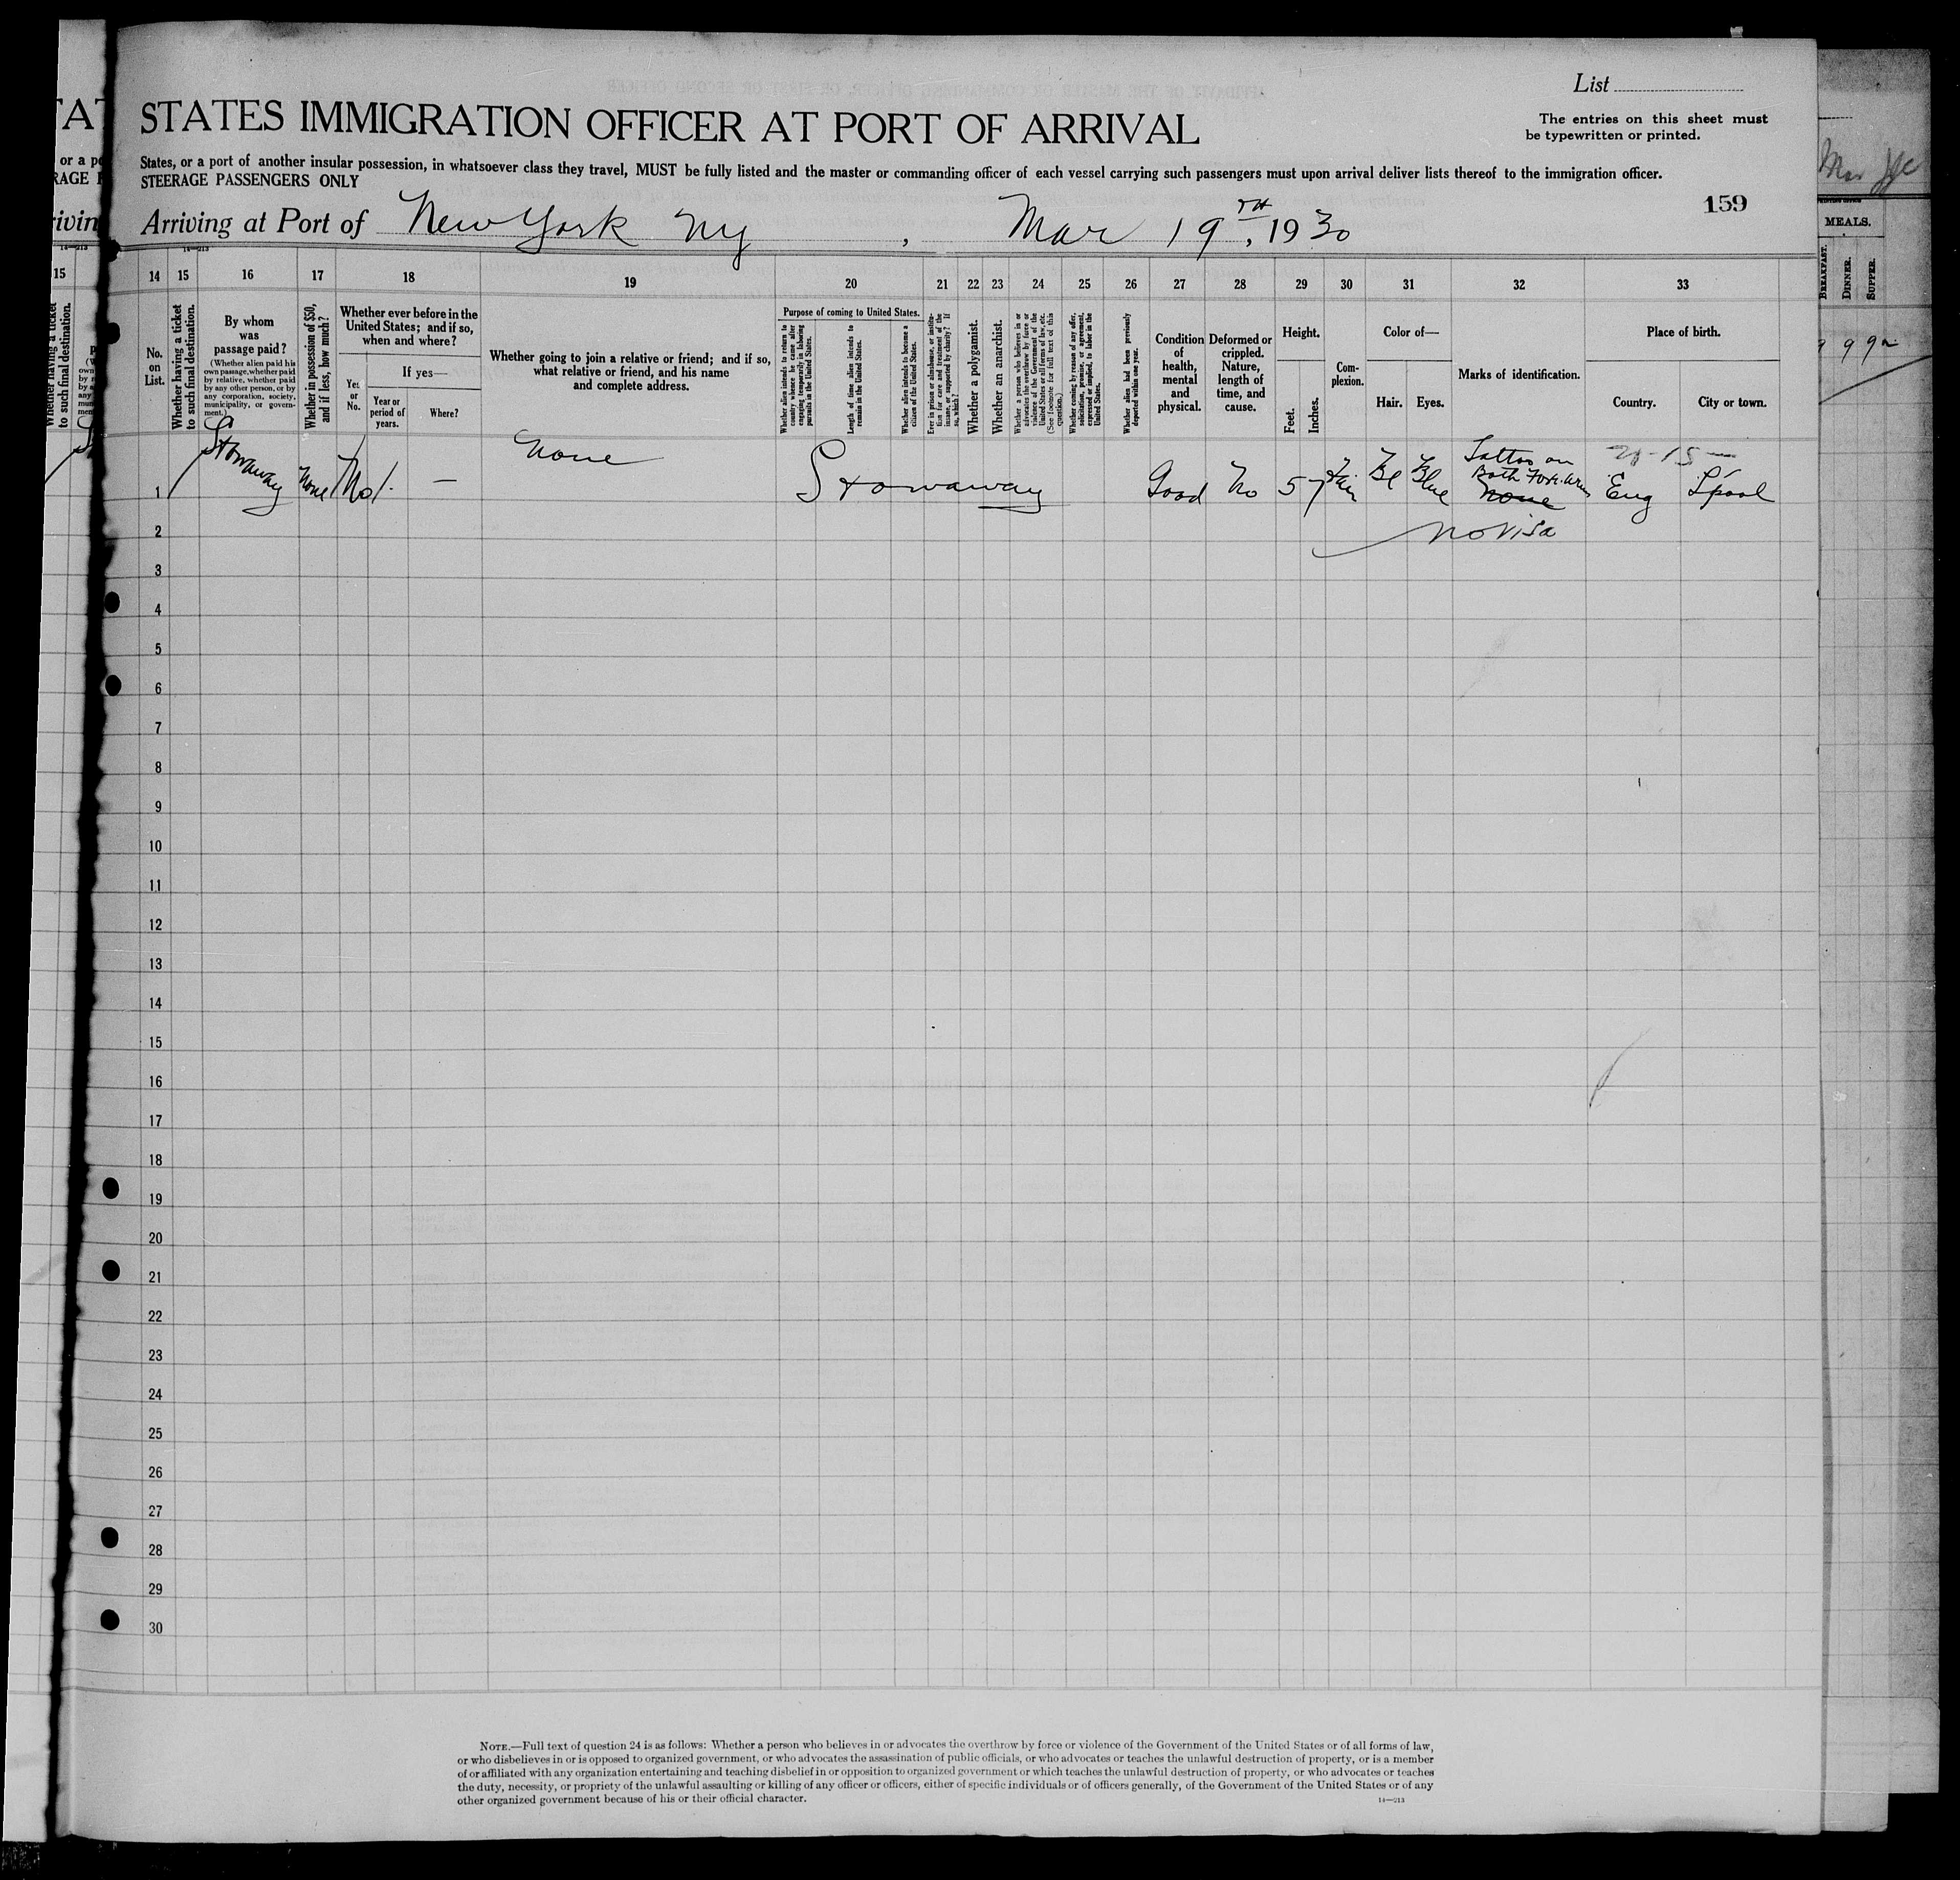 List
STATES IMMIGRATION OFFICER AT PORT OF ARRIVAL
The entries on this sheet must
be typewritten or printed.
States, or a port of another insular possession, in whatsoever class they travel, MUST be fully listed and the master or commanding officer of each vessel carrying such passengers must upon arrival deliver lists thereof to the immigration officer.
STEERAGE PASSENGERS ONLY
159
Arriving at Port of New York NY, Mar 19TH, 1930
14—213
14 15 16 17 18 19 20 21 22 23 24 25 26 27 28 29 30 31 32 33
No. on List.
Whether having a ticket to such final destination.
By whom was passage paid?
(Whether alien paid his own passage, whether paid by relative, whether paid by any other person, or by any corporation, society, municipality, or government.)
Whether in possession of $50, and if less, how much?
Whether ever before in the United States; and if so, when and where?
Yes or No.
If yes—
Year or period of years.
Where?
Whether going to join a relative or friend; and if so, what relative or friend, and his name and complete address.
Purpose of coming to United States.
Whether alien intends to return to country whence he came after engaging temporarily in laboring pursuits in the United States.
Length of time alien intends to remain in the United States.
Whether alien intends to become a citizen of the United States.
Ever in prison or almshouse, or institution for care and treatment of the insane, or supported by charity? If so, which?
Whether a polygamist.
Whether an anarchist.
Whether a person who believes in or advocates the overthrow by force or violence of the Government of the United States or all forms of law, etc. (See footnote for full text of this question.)
Whether coming by reason of any offer, solicitation, promise, or agreement, expressed or implied, to labor in the United States.
Whether alien had been previously deported within one year.
Condition of health, mental and physical.
Deformed or crippled. Nature, length of time, and cause.
Height.
Feet.
Inches.
Complexion.
Color of—
Hair.
Eyes.
Marks of identification.
Place of birth.
Country.
City or town.
1 Stowaway None No. — None Stowaway Good No 5 7 Fair Bl Blue Tattoo on Both Fore Arms none Eng L'pool
2 no visa
3
4
5
6
7
8
9
10
11
12
13
14
15
16
17
18
19
20
21
22
23
24
25
26
27
28
29
30
NOTE.—Full text of question 24 is as follows: Whether a person who believes in or advocates the overthrow by force or violence of the Government of the United States or of all forms of law,
or who disbelieves in or is opposed to organized government, or who advocates the assassination of public officials, or who advocates or teaches the unlawful destruction of property, or is a member
of or affiliated with any organization entertaining and teaching disbelief in or opposition to organized government or which teaches the unlawful destruction of property, or who advocates or teaches
the duty, necessity, or propriety of the unlawful assaulting or killing of any officer or officers, either of specific individuals or of officers generally, of the Government of the United States or of any
other organized government because of his or their official character.
14—213
MEALS.
BREAKFAST.
DINNER.
SUPPER.